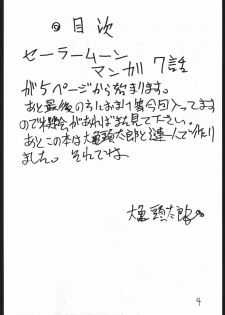 ◎目次
セーラームーン
マンガ 7話
が5ページから始まります。
あと最後の方におまけ等今回入ってます
ので機会があればまた見て下さい。
あとこの本は大亀頭太郎と連一人で作り
ました。それでは
大亀頭太郎
4